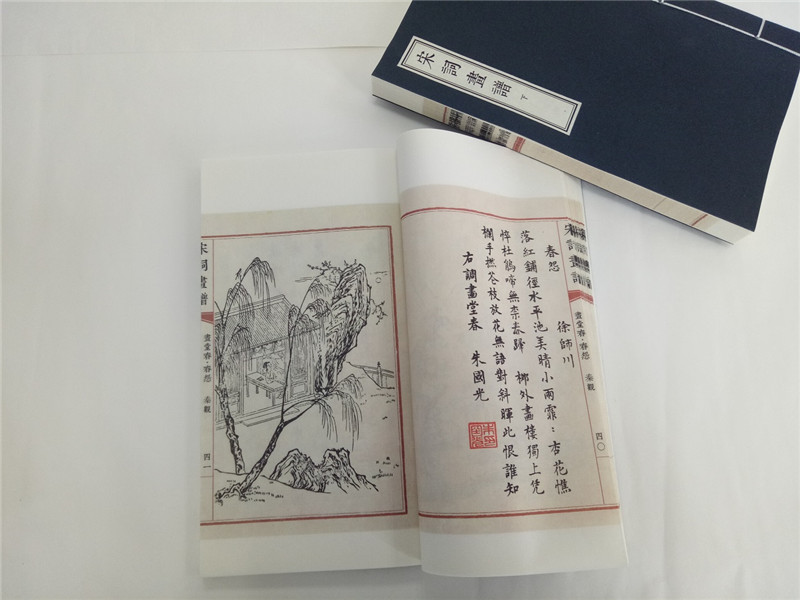 宋詞畫譜 下
宋詞畫譜
畫堂春·春怨 秦觀 四〇
春怨
徐師川
落紅鋪徑水平池美晴小雨霏:杏花憔
悴杜鵑啼無柰春歸 柳外畫樓獨上凭
欄手撫花枝放花無語對斜暉此恨誰知
右調畫堂春 朱國光
宋詞畫譜
畫堂春·春怨 秦觀 四一